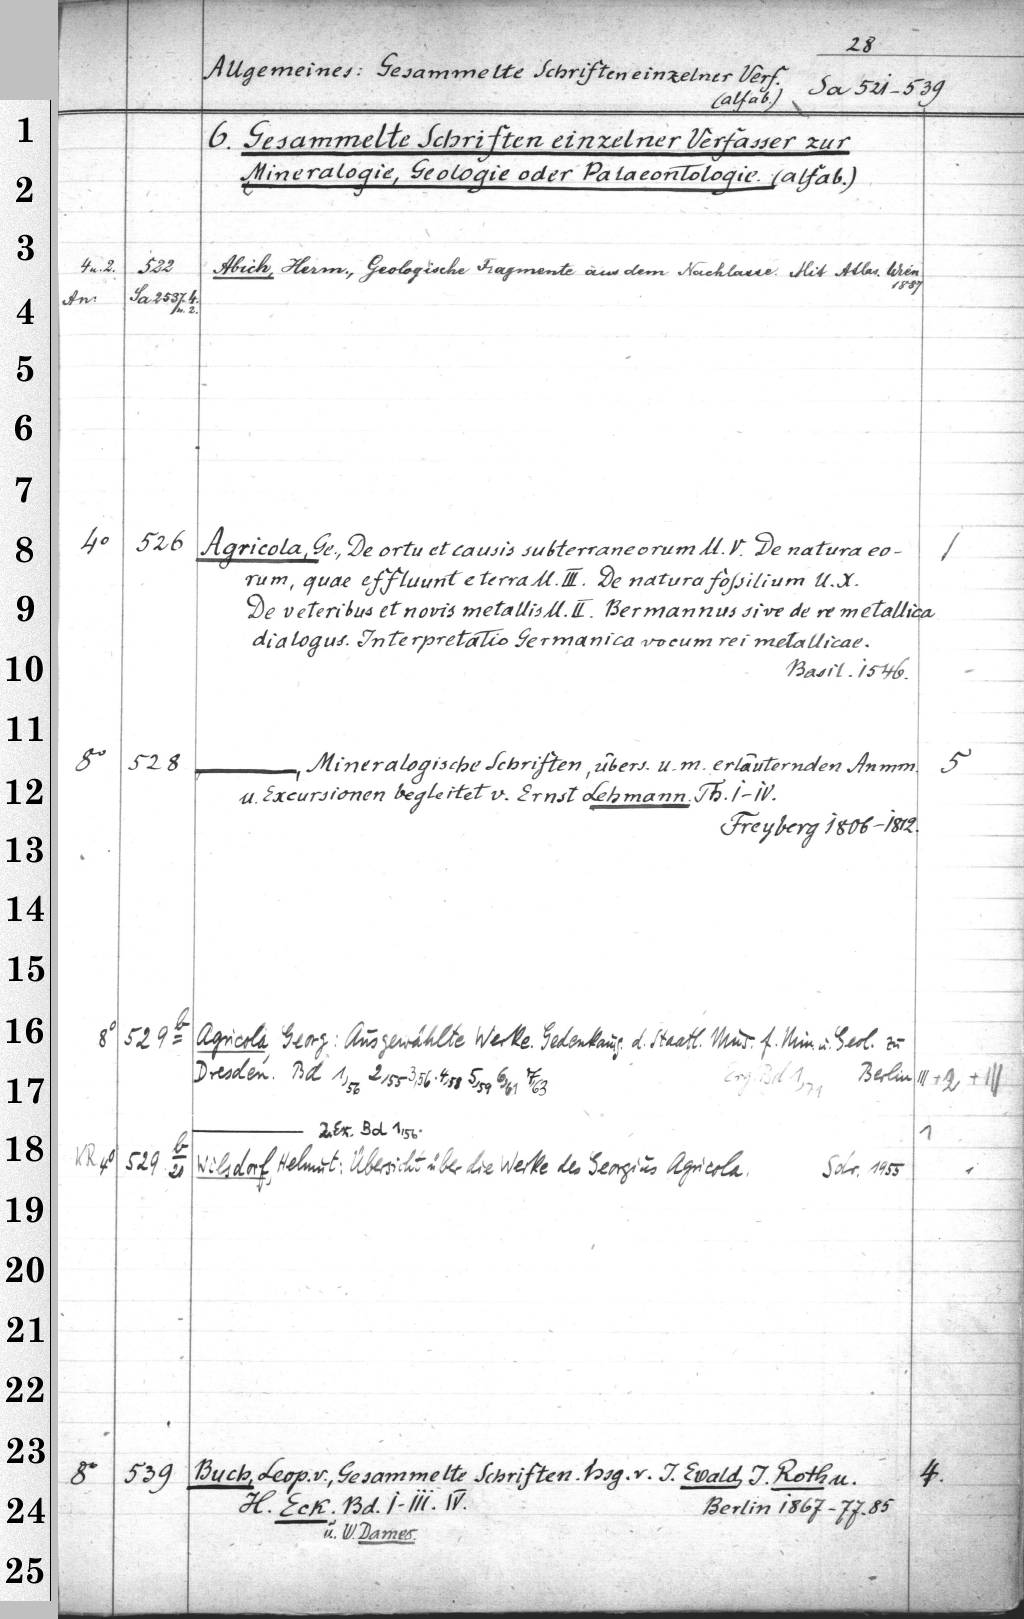 28
Allgemeines: Gesammelte Schriften einzelner Verf. (alfab.) Sa 521-539
1
6. Gesammelte Schriften einzelner Verfasser zur
2
Mineralogie, Geologie oder Palaeontologie. (alfab.)
3
4 u. 2. 522 Abich, Herm., Geologische Fragmente aus dem Nachlasse. Mit Atlas. Wien 1887
An: Sa 2537, 4. u. 2.
4
5
6
7
8
4° 526 Agricola, Ge., De ortu et causis subterraneorum ll. V. De natura eo- 1
rum, quae effluunt e terra ll. III. De natura fossilium ll. X.
9
De veteribus et novis metallis ll. II. Bermannus sive de re metallica
dialogus. Interpretatio Germanica vocum rei metallicae.
10
Basil. 1546.
11
8° 528 ———, Mineralogische Schriften, übers. u. m. erläuternden Anmm. 5
12
u. Excursionen begleitet v. Ernst Lehmann. Th. I-IV.
Freyberg 1806-1812.
13
14
15
16
8° 529 b Agricola, Georg: Ausgewählte Werke. Gedenkausg. d. Staatl. Mus. f. Min. u. Geol. zu
17
Dresden. Bd 1,56 2,55 3,56 4,58 5,59 6,61 7,63 Erg. Bd 1,71 Berlin III + 2 + III
——— 2. Ex. Bd 1,56. 1
18
KR 4° 529 b/20 Wilsdorf, Helmut: Übersicht über die Werke des Georgius Agricola. Sdr. 1955 1
19
20
21
22
23
8° 539 Buch, Leop. v., Gesammelte Schriften. hsg. v. J. Ewald, J. Roth u. 4.
24
H. Eck. Bd. I-III. IV. Berlin 1867-77. 85
u. W. Dames.
25